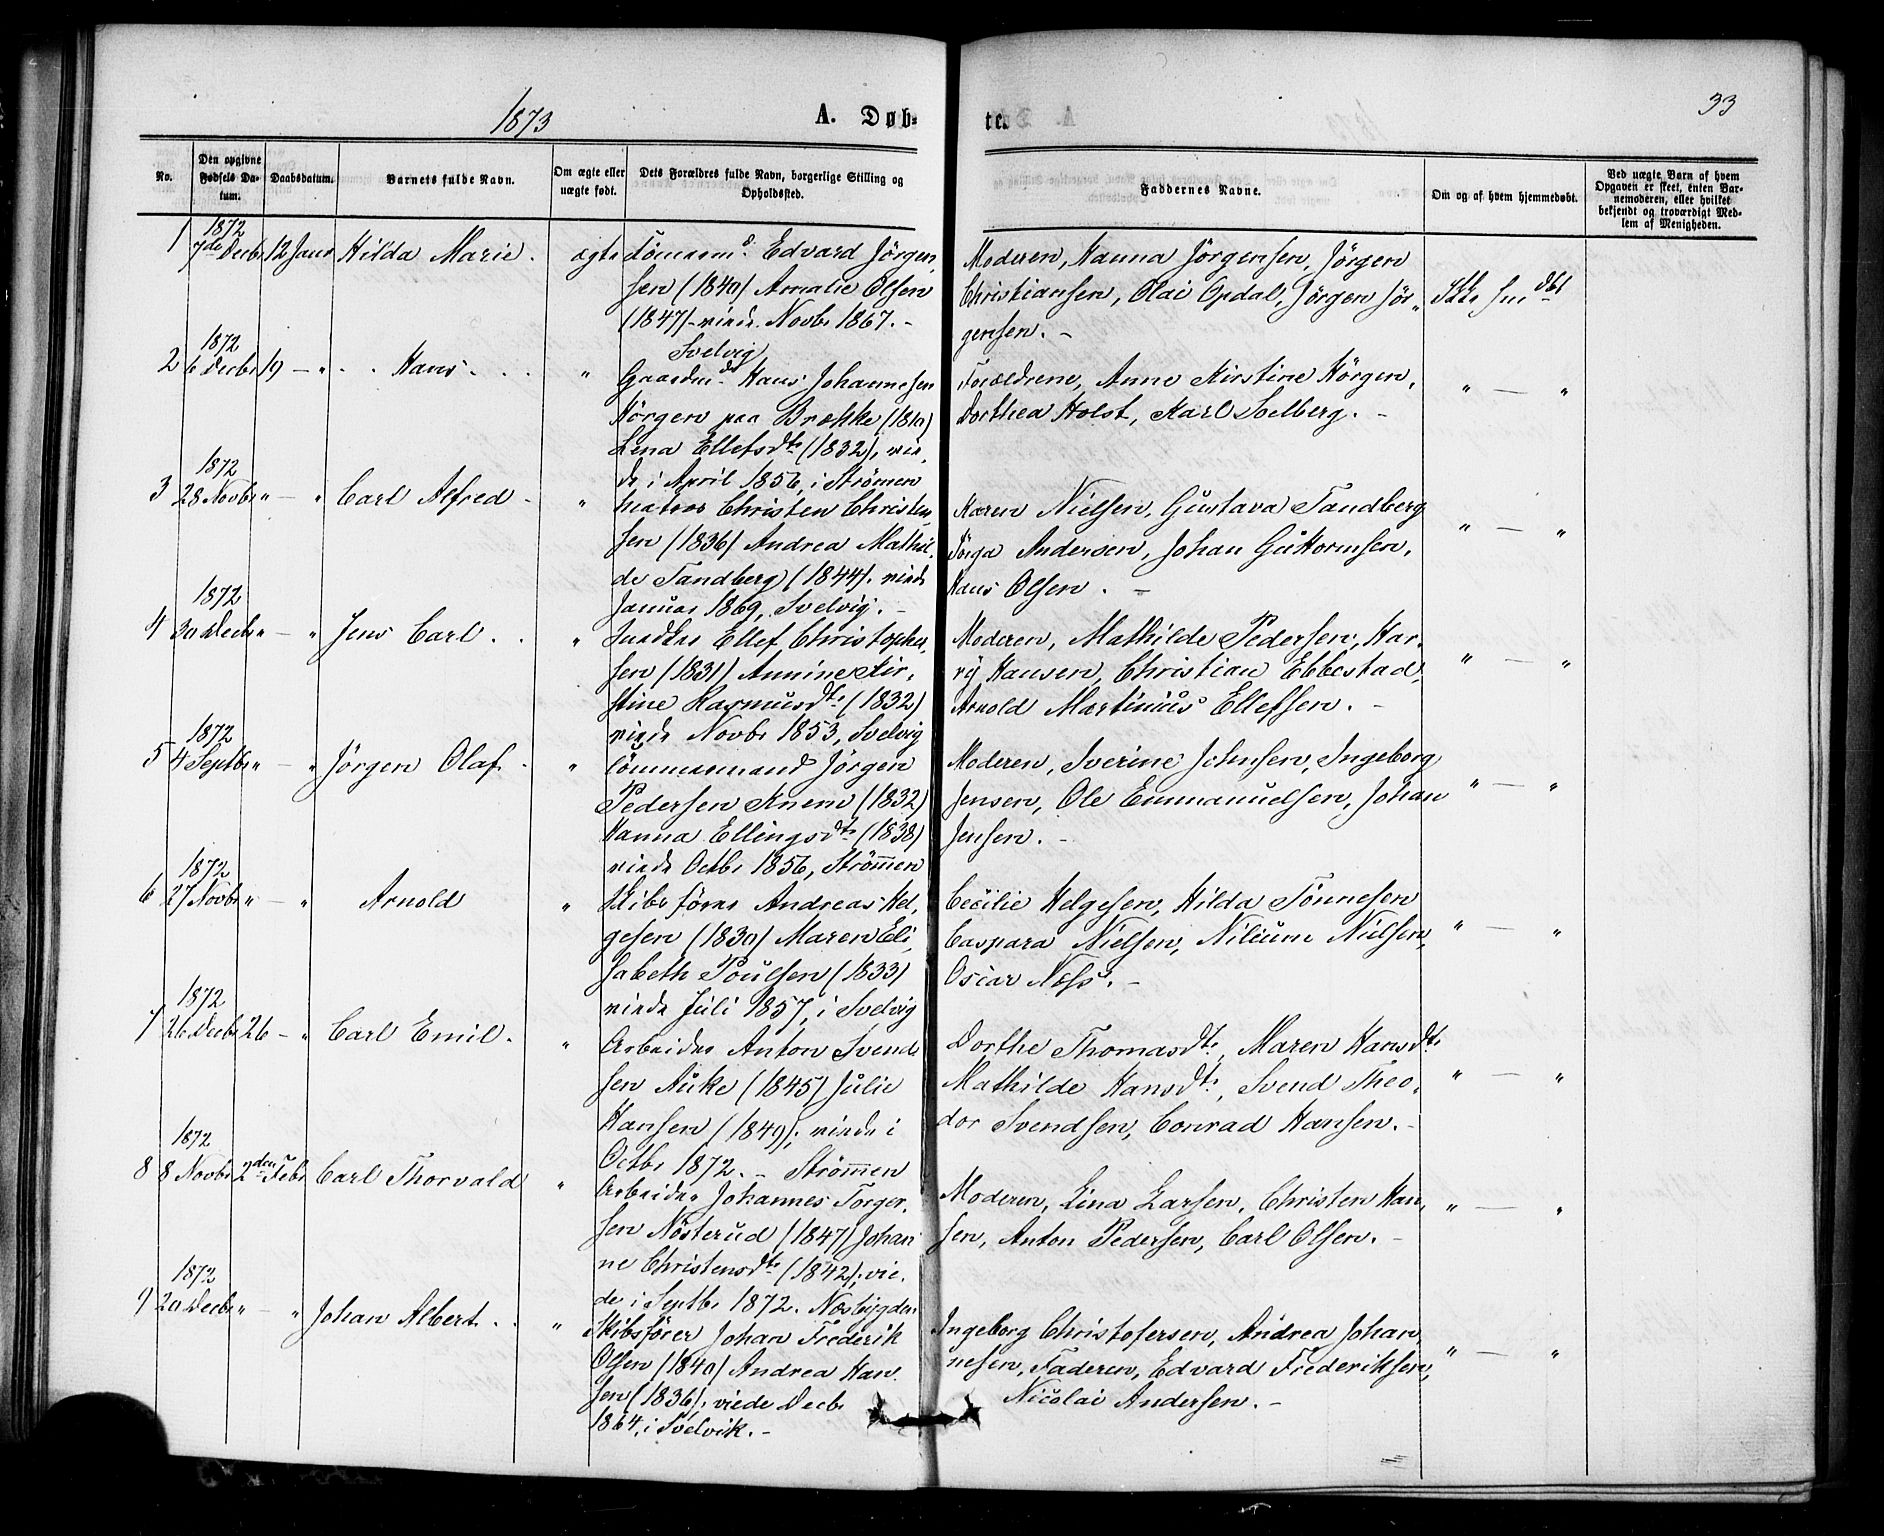 1873
A. Døb-
te.
33
No.
Den opgivne Fødsels Da-tum.
Daabsdatum.
Barnets fulde Navn.
Om ægte eller uægte født.
Dets Forældres fulde Navn, borgerlige Stilling og Opholdssted.
Faddernes Navne.
Om og af hvem hjemmedøbt.
Ved uægte Barn af hvem Opgaven er skeet, enten Bar-nemoderen, eller hvilket bekjendt og troværdigt Med-lem af Menigheden.
1 1872 7de Decbr 12 Janr Hilda Marie. ægte Tömerm d. Edvard Jörgen,
sen (1840) Amalie Olsen
(1847) - viede Novbr 1867. -
Svelvig
Moderen, Hanna Jörgensen, Jörgen
Christiansen, Olai Opdal, Jörgen Jör,
gensen. -
Ikke hm dbt
2 1872 6 Decbr 19 — " Hans " Gaardmd. Hans Johannesen
Körgen paa Brække (1810)
Lena Ellefsdtr (1832); vie,
de i April 1856, i Strömen
Forældrene, Anne Kirstine Körgen,
Dorthea Holst, Karl Solberg. -
" — "
3 1872 28 Novbr " — " Carl Alfred - " Matros Christen Christen,
sen (1836) Andrea Mathil,
de Tandberg (1844); viede
Januar 1869, Svelvig. -
Karen Nielsen, Gustava Tandberg
Andersen, Johan Guttormsen,
Hans Olsen. -
" — "
4 1872 30 Decbr " — " Jens Carl. " Ellef Christopher,
sen (1831) Annine Kir,
stine Rasmusdtr (1832)
viede Novbr 1853, Svelvig
Moderen, Mathilde Pedersen, Har,
ry Hansen, Christian Ebbestad,
Arnold Martinius Ellefsen. -
" — "
5 1872 4 Septbr " — " Jörgen Olaf. " Tömmermand Jörgen
Pedersen Knem (1832)
Hanna Ellingsdtr (1838)
viede Octbr 1856, Strömmen
Moderen, Sverine Johnsen, Ingeborg
Jensen, Ole Emmanuelsen, Johan
Jensen. -
" — "
6 1872 27 Novbr " — " Arnold " Skibsförer Andreas Hel,
gesen (1830) Maren Eli,
sabeth Poulsen (1833)
viede Juli 1857, i Svelvig
Cecilie Helgesen, Hilda Tönnesen
Caspara Nielsen, Nilium Nielsen,
Oscar Næss. -
" — "
7 1872 26 Decbr 26 — " Carl Emil. " Arbeider Anton Svend
sen Auke (1845) Julie
Hansen (1849); viede i
Octbr 1872. - Strömmen
Dorthe Thomasdtr, Maren Hansdtr
Mathilde Hansdtr, Svend Theo,
dor Svendsen, Conrad Hansen. -
" — "
8 1872 8 Novbr 2den Febr Carl Thorvald " Arbeider Johannes Torger,
sen Nösterud (1847) Johan
ne Christensdtr (1842); vie,
de i Septbr 1872. Nesbygden
Moderen, Lina Larsen, Christen Han,
sen, Anton Pedersen, Carl Olsen. -
" — "
9 1872 20 Decbr " — " Johan Albert. " Skibsförer Johan Frederik
Olsen (1840) Andrea Han,
sen (1836); viede Decbr
1864, i Svelvik. -
Ingeborg Christofersen, Andrea Johan,
nesen, Faderen, Edvard Frederiksen,
Nicolai Andersen. -
" — "